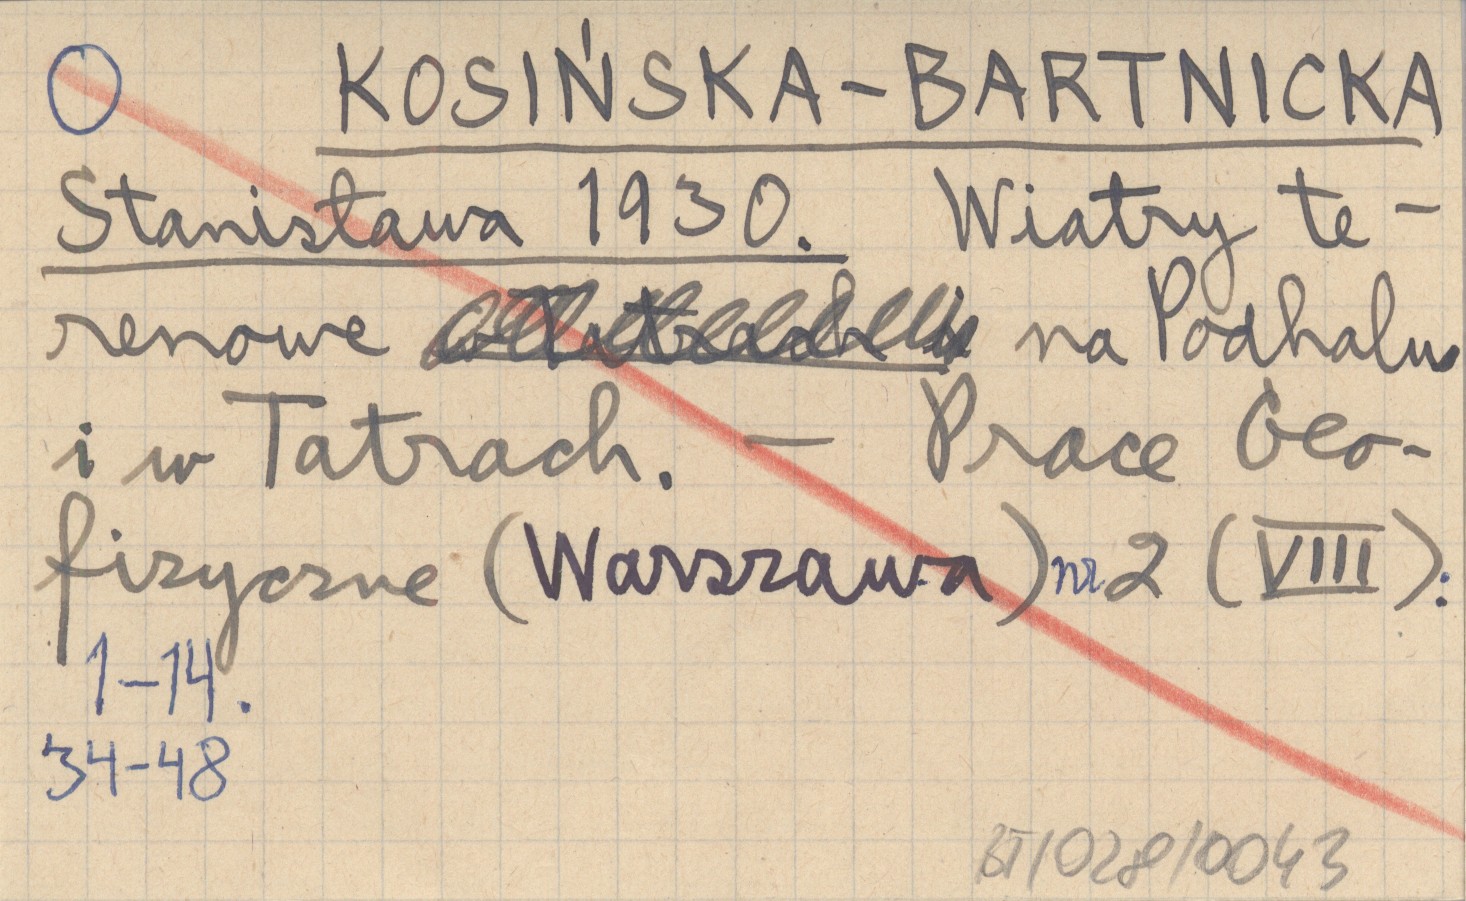 O KOSIŃSKA-BARTNICKA
Stanisława 1930. Wiatry te-
renowe w Tatrach i na Podhalu
i w Tatrach. — Prace Geo-
fizyczne (Warszawa) nr 2 (VIII):
1-14.
34-48
BT/028/0043